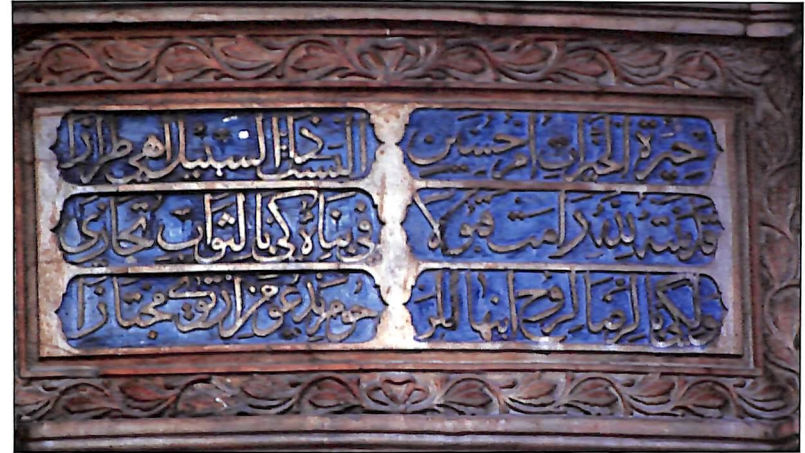 خيرة الخيرات ام حسين انشئت ذا السبيل ابهى طرازا
قدمته لله رامت قبولا في بناه كي بالثواب تجازى
ولكي بالرضا لروح ابنها المر حوم يدعو من ارتوى مجتازا